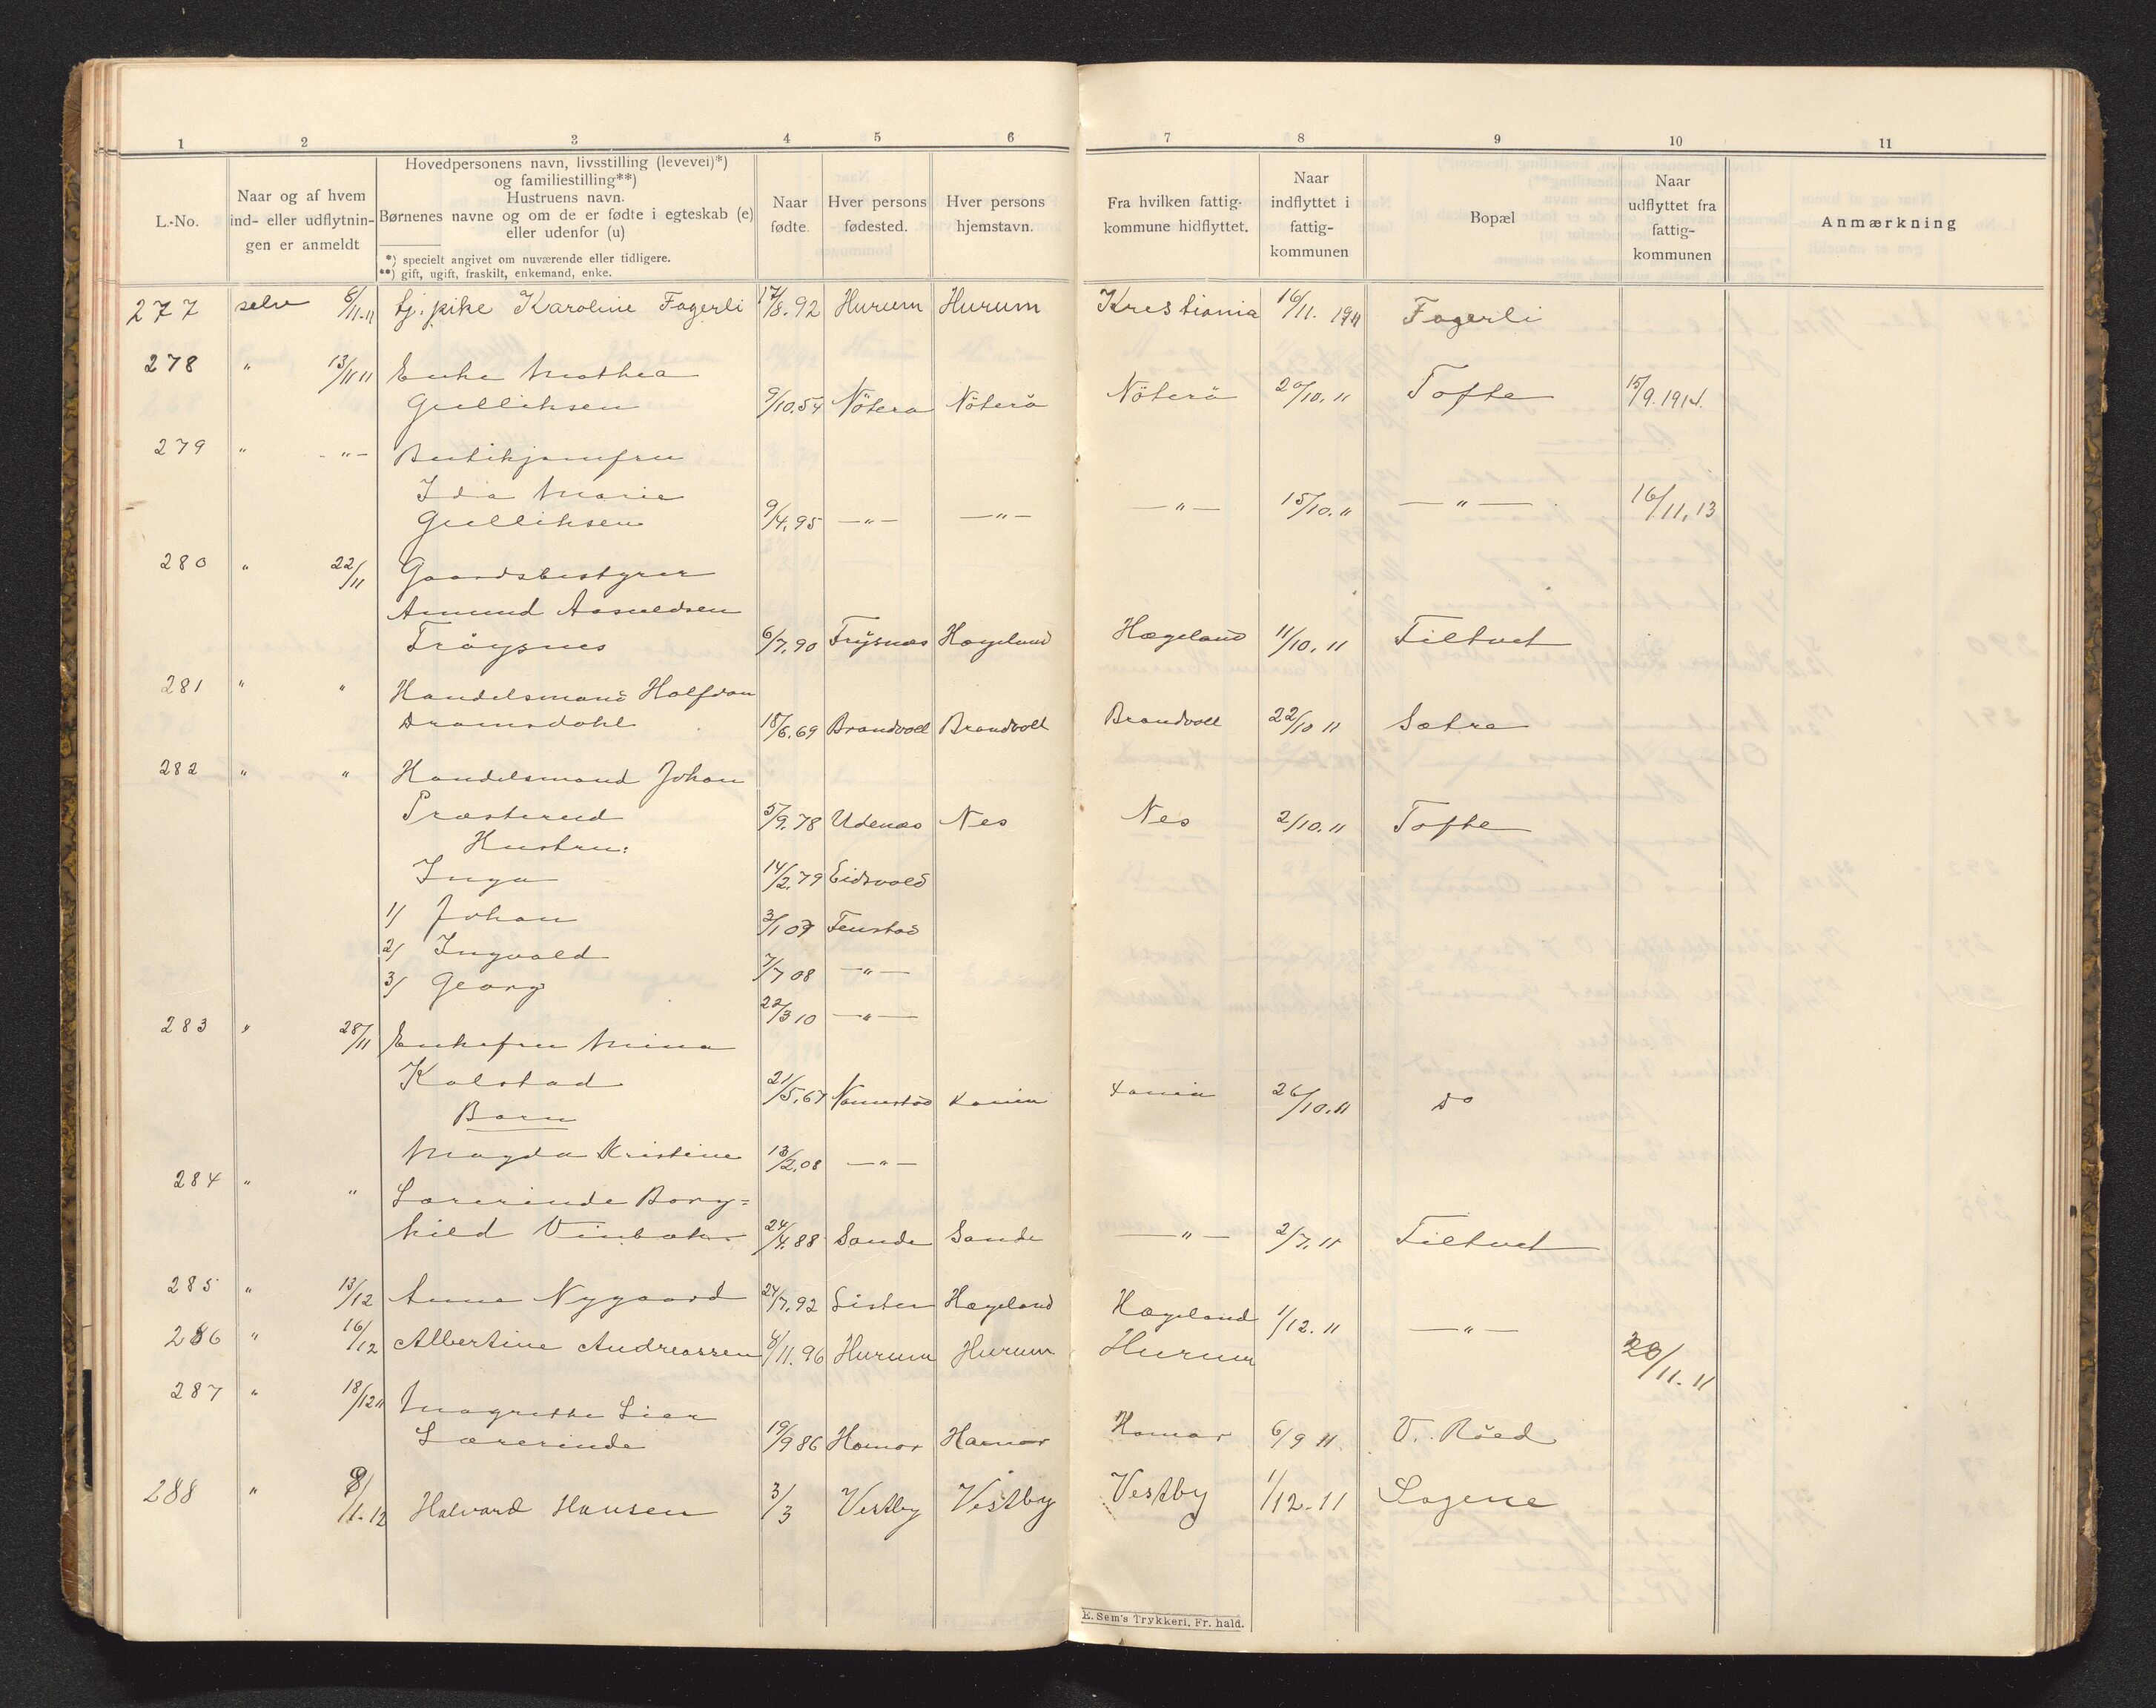 1 2 3 4 5 6 7 8 9 10 11
L.-No.
Naar og af hvem
ind- eller udflytnin-
gen er anmeldt
Hovedpersonens navn, livsstilling (levevei)*)
og familiestilling**)
Hustruens navn.
Børnenes navne og om de er fødte i egteskab (e)
eller udenfor (u)
*) specielt angivet om nuværende eller tidligere.
**) gift, ugift, fraskilt, enkemand, enke.
Naar
fødte.
Hver persons
fødested.
Hver persons
hjemstavn.
Fra hvilken fattig-
kommune hidflyttet.
Naar
indflyttet i
fattig-
kommunen
Bopæl
Naar
udflyttet fra
fattig-
kommunen
Anmærkning
277 selv 6/11-11 tj. pike Karoline Fagerli 17/8.92 Hurum Hurum Krestiania 16/11. 1911 Fagerli
278 " 13/11 11 Enke Mathea
Gulliksen 9/10.54 Nöterö Nöterö Nöterö 20/10. 11 Tofte 15/9.1914.
279 " -"- Butikjomfru
Ida Marie
Gulliksen 9/4.95 —"— —"— —"— 15/10. 11 —"— 16/11.13
280 " 22/11 Gaardsbestyrer
Amund Aasuldsen
Fröysnes 6/7.90 Fröysnæs Hægeland Hægeland 11/10. 11 Filtvet
281 " " Handelsmand Halfdan
Dramsdahl 18/6.69 Brandvoll Brandvoll Brandvoll 22/10 11 Sætre
282 " " Handelsmand Johan
Præsterud 5/9.78 Udenæs Nes Nes 2/10. 11 Tofte
Hustru:
Inga 14/2.79 Eidsvold
1/ Johan 3/1 07 Fenstad
2/ Ingvald 7/7 08 —"—
3/ Georg 22/3 10 —"—
283 " 28/11 Enkefru Mina
Kolstad 21/5.67 Kania 26/10.11 Do
Barn
Magda Kristine 13/2.08 —"—
284 " " Lærerinde Borg=
hild 24/4.88 Sande Sande —"— 2/7. 11 Filtvet
285 " 13/12 Anna Nygaard 24/7.92 Lister Hægeland Hægeland 1/12. 11 —"—
286 " 16/12 Albertine Andreassen 4/11.96 Hurum Hurum Hurum 28/11. 11
287 " 18/12 11 Magrethe Lier
Lærerinde 19/9 86 Hamar Hamar Hamar 6/9 11. V. Röed
288 " 8/1-12 Halvard Hansen 3/3 Vestby Vestby Vestby 1/12-11 Sagene
E. Sem's Trykkeri, Fr. hald.